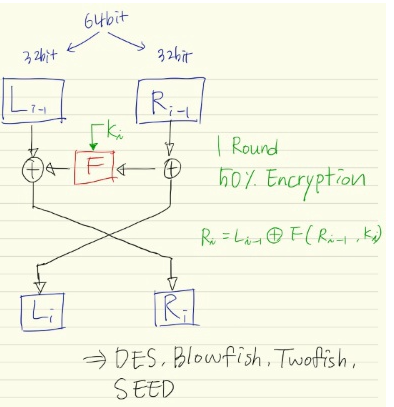 64bit
32bit
32bit
L i-1
R i-1
Ki
F
1 Round
50% Encryption
Ri = Li-1 ⊕ F(Ri-1, Ki)
Li
Ri
⇒ DES, Blowfish, Twofish,
SEED